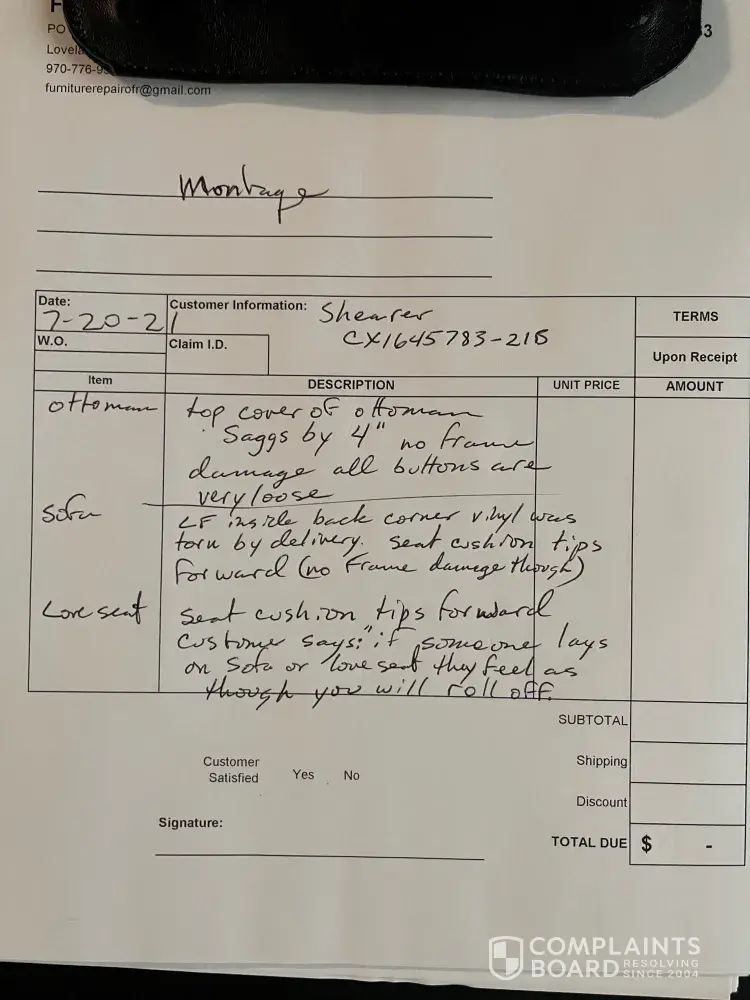 F
PO
3
Lovela
970-776-9
furniturerepairofr@gmail.com
Montage
Date:
7-20-21
Customer Information: Shearer
CX1645783-21B
TERMS
W.O.
Claim I.D.
Upon Receipt
Item DESCRIPTION UNIT PRICE AMOUNT
ottoman top cover of ottoman
Saggs by 4" no frame
damage all buttons are
very loose
Sofa LF inside back corner vinyl was
torn by delivery. seat cushion tips
forward (no Frame damage though)
Love seat seat cushion tips forward
customer says: "if someone lays
on Sofa or love seat they feel as
though you will roll off.
SUBTOTAL
Customer
Satisfied Yes No
Shipping
Discount
Signature:
TOTAL DUE $ -
COMPLAINTS
BOARD RESOLVING
SINCE 2004